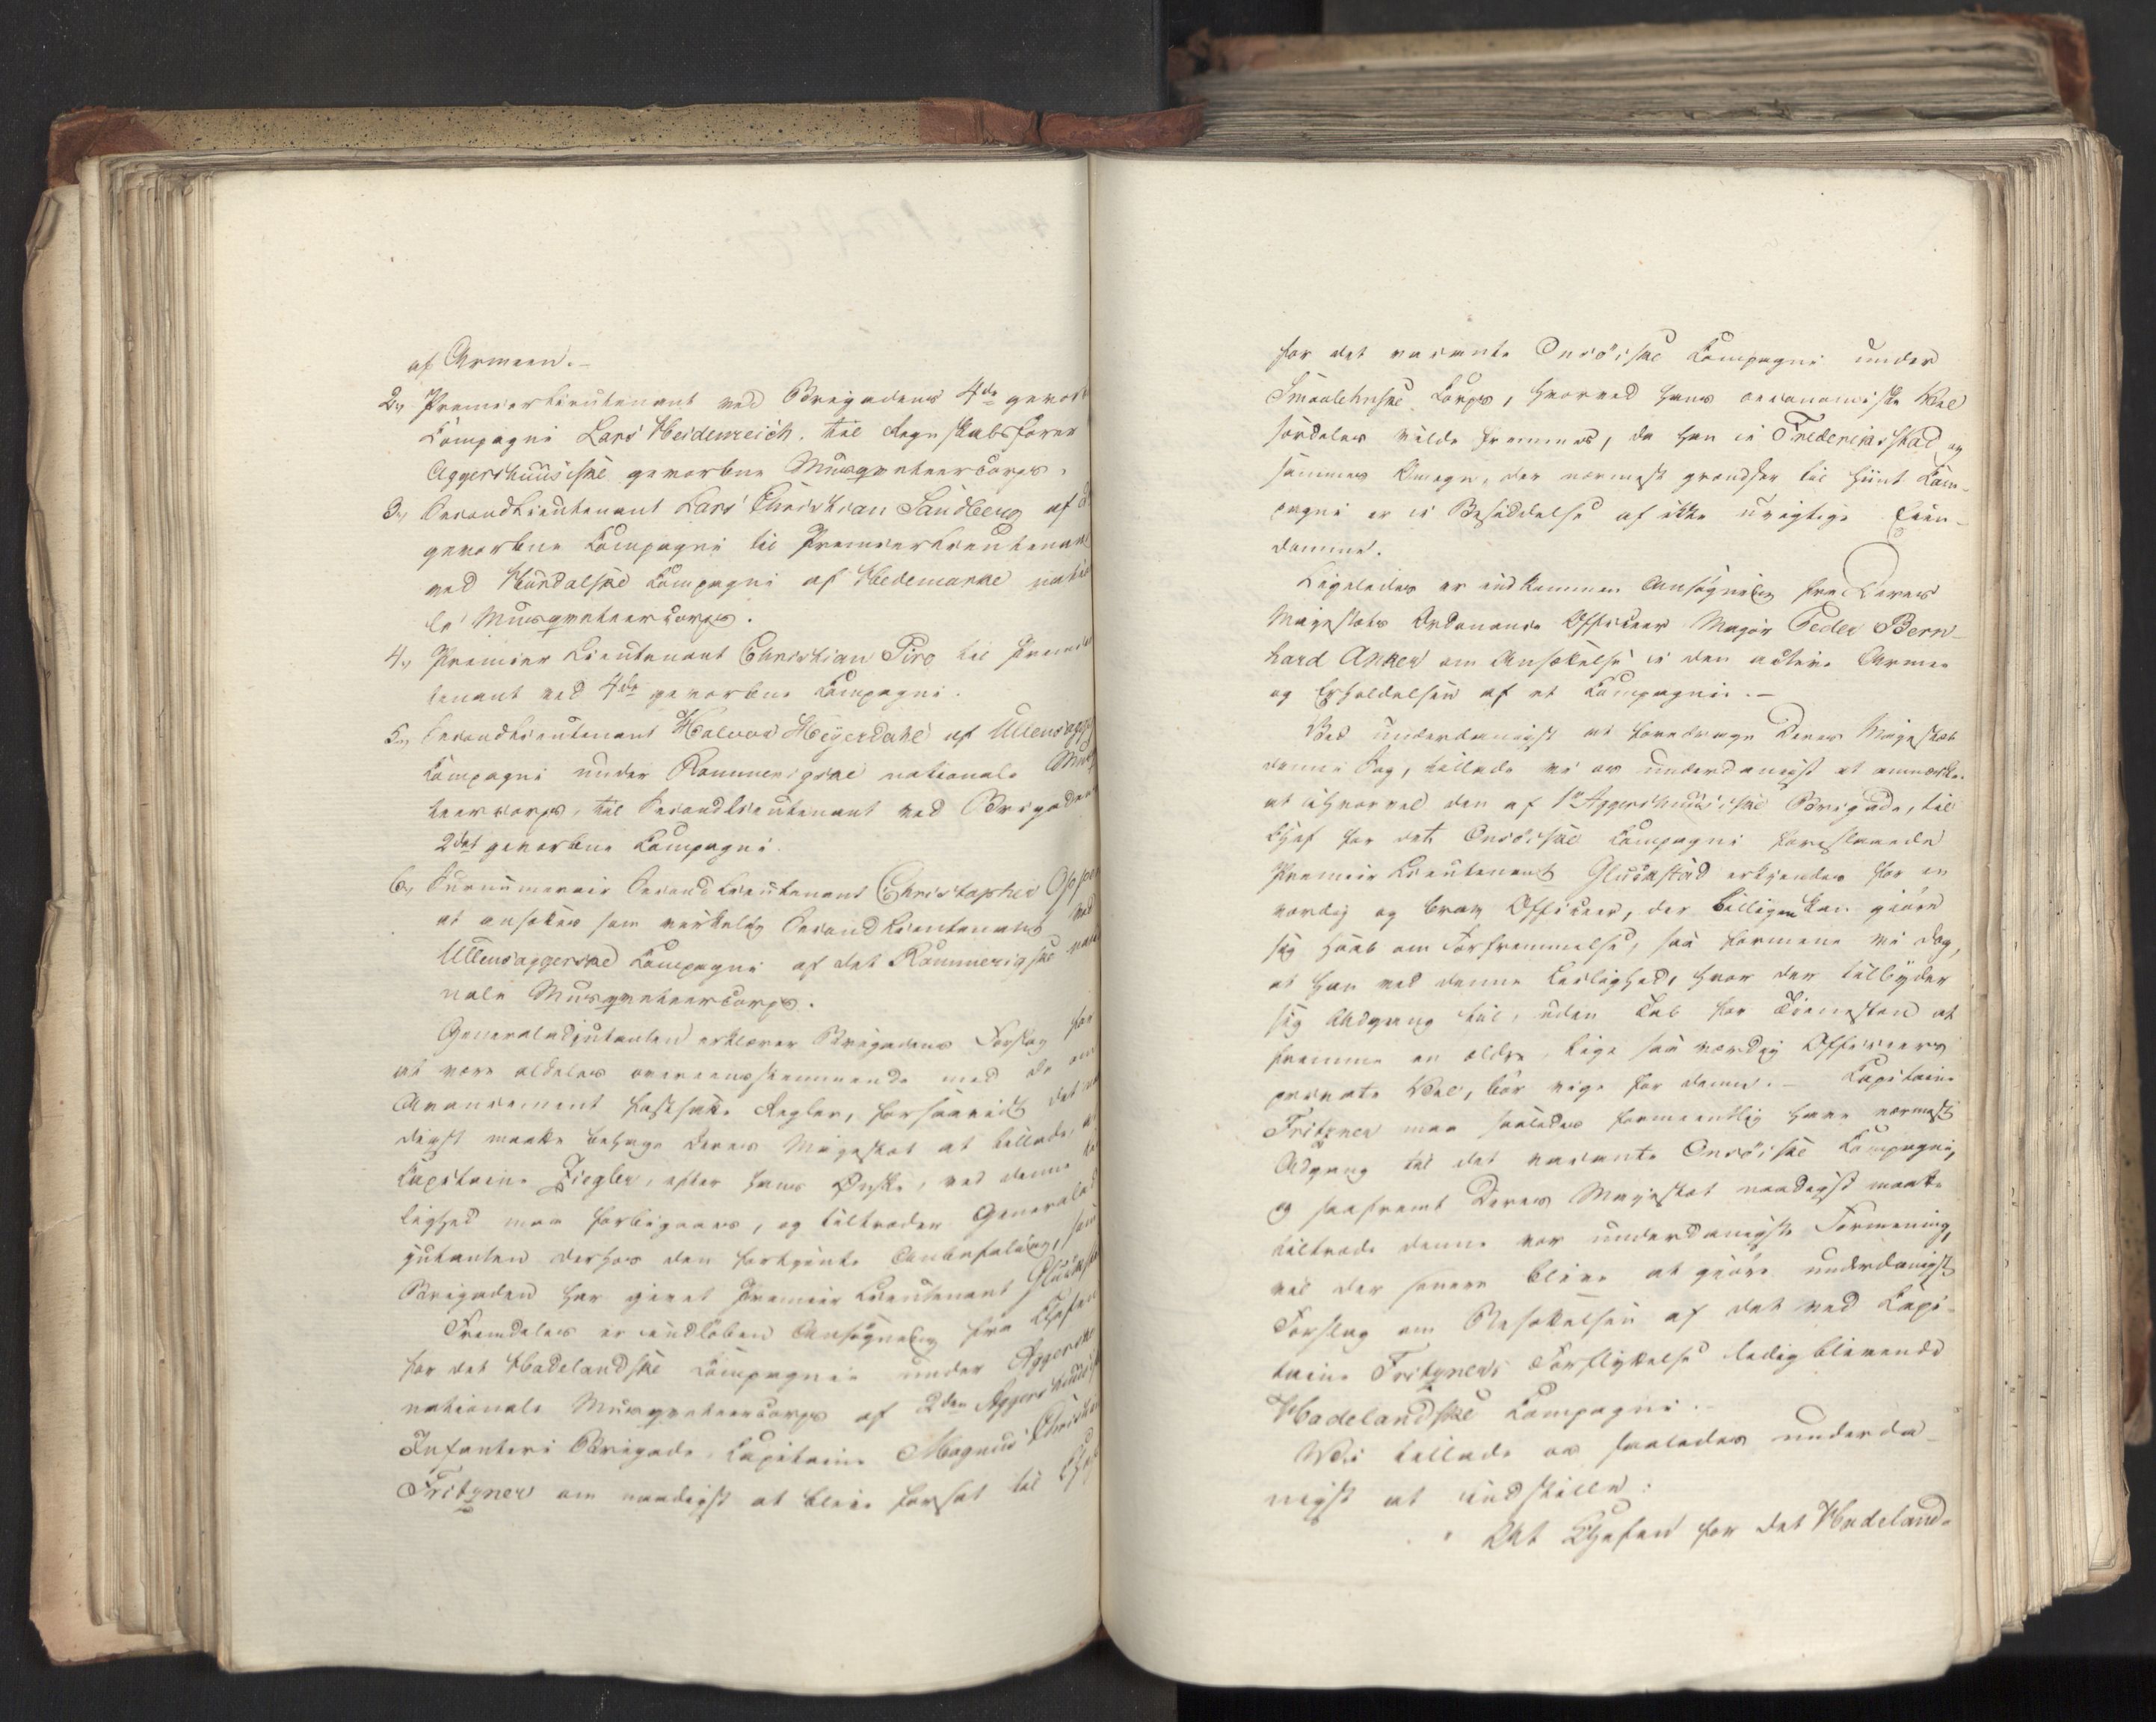 af Armeen.-
2, Premierlieutenant ved Brigadens 4de gevorb
Compagni Lars Heidenreich, til Regnskabsfører
Aggershuusiske gevorbne Musqveteercorps,
3, Secondlieutenant Lars Christian Sandberg af
gevorbne Compagni til Premierlieutenant
ved Hurdalske Compagni af Hedemarke natio
le Musqveteercorps.
4, Premier Lieutenant Christian Piro til Premier
tenant ved 4de gevorbne Compagni.
5, Secondlieutenant Halvor Heyerdahl af Ullensagger
Compagni under Rommerigske nationale Musq
teercorps, til Secondlieutenant ved Brigadens
2det gevorbne Compagni.
6, Surnumerair Secondlieutenant Christopher
at ansættes som virkelig Secondlieutenant ved
Ullensaggerske Compagni af det Rommerigske
nale Musqveteercorps.
Generaladjutanten erklærer Brigadens Forslag for
at være aldeles overeensstemmende med de om
Avancement fastsatte Regler, forsaavidt det
digst maatte behage Deres Majestæt at tillade, at
Capitaine Ziegler, efter hans Ønske, ved denne
lighed maa forbigaaes, og tiltræder Generalad
jutanten derhos den fortjente Anbefaling, som
Brigaden har givet Premier Lieutenant Gluckst
Fremdeles er indløben Ansøgning fra Chefen
for det Hadelandske Compagnie under Aggersh
nationale Musqveteercorps af 2den Aggershuusi
Infanteri Brigade, Capitaine Magnus
Fritzner om naadigst at blive forsat til Chef
for det vacante Onsøiske Compagni under
Smaalehnske Corps, hvorved hans oeconomiske Vel
særdeles vilde fremmes, da han i Frederiksstad og
sammes Omegn, der nærmest grændser til hiint Com-
pagni er i Besiddelse af ikke uvigtige Eien-
domme.
Ligeledes er indkommen Ansøgning fra Deres
Majestæts Ordonance Officeer Major Peder Bern-
hard Anker om Ansættelse i den active Armee
og Erholdelsen af et Compagnie.-
Ved underdanigst at foredrage Deres Majestæt
denne Sag, tillade vi os underdanigst at anmærke
at ihvorvel den af 1e Aggershuusiske Brigade, til
Chef for det Onsøiske Compagni foreslaaede
Premier Lieutenant Gluckstad erkjendes for en
værdig og brav Officeer, der billigen kan giøre
sig Haab om Forfremmelse, saa formene vi dog,
at han ved denne Leilighed, hvor der tilbyder
sig Adgang til, uden Tab for Tienesten at
fremme en ældre, lige saa værdig Officeers
private Vel, bør vige for denne.- Capitaine
Fritzner maa saaledes formeentlig have nærmest
Adgang til det vacante Onsøiske Compagni,
og saafremt Deres Majestæt naadigst maatte
tiltræde denne vor underdanigste Formening,
vil der senere blive at giøre underdanigst
Forslag om Besættelsen af det ved Capi-
taine Fritzners Forflyttelse ledigblivende
Hadelandske Compagni.-
Vi tillade os saaledes underda-
nigst at indstille:
At Chefen for det Hadeland-